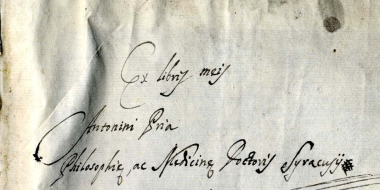 Ex libris meis
Antonini Pria
Philosophię ac Medicinę Doctoris Syracusij